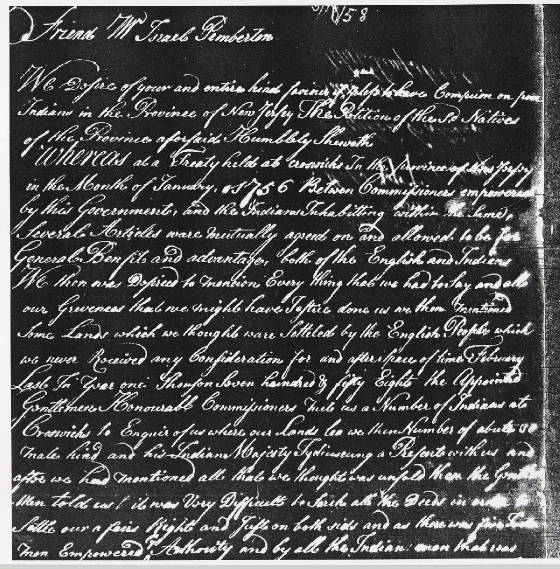 /58
Friend Mr Israel Pemberton
We Desire of your and entire kind to have Compsion on poor
Indians in the Province of New Jersy The Petition of the Sd Natives
of the Province aforsaid Humblely Sheweth
Whereas at a Treaty held at Croswicks In the province of New Jersy
in the Month of January, 1756 Between Commissioners empowered
by this Government, and the Indians Inhabitting within the same,
Severals Articles ware mutually agreed on and allowed to be for
General Benfits and advantages, both of the English and Indians
We then was Desired to mention Every thing that we had to Say and all
our Greveness that we might have Jestice done us we then mentioned
Some Lands which we thought ware Setteled by the English People which
we never Received any Consideration for and after Space of time February
Last In Year one Thouson Seven hundred & fifty Eight the Appointed
Gentlemen Honourable Commissioners us a Number of Indians at
Croswicks to Enquir of us where our Lands we then Number of
male kind and his Indian Majesty Tydiuscung a Present with us, and
after we had mentioned all that we thought was unsold then the
Men told us it was Very Difficult to Sarch all the Deeds in
Settle our a fairs Right and Jest on both sids and as there was
men Empowered Authority and by all the Indian man that was